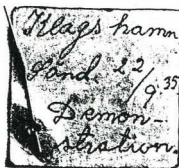 Klags hamn
Sand. 22/9 35
Demon-
stration.